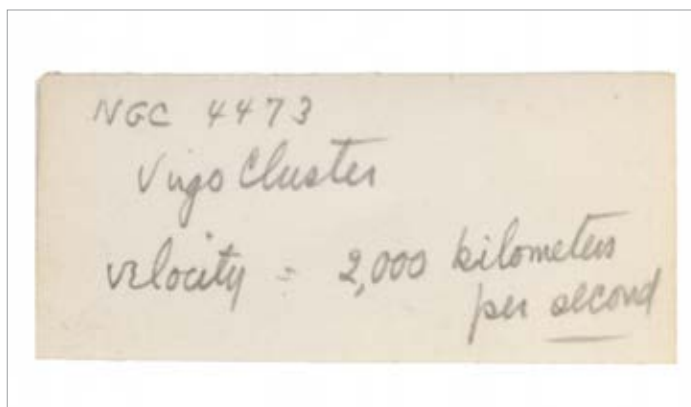 NGC 4473
Virgo Cluster
velocity = 2,000 kilometers
per second